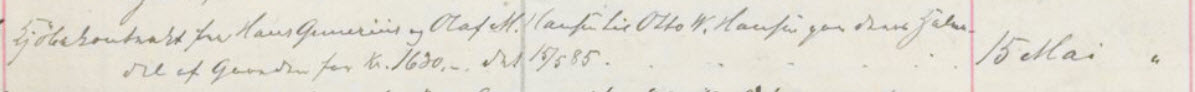 Kjöbekontrakt fra Hans Gunerius og Olaf M. Hansen til Otto W. Hansen paa deres halve
del af Gaarden for Kr. 1630,-. dat 15/5 85. 15 Mai "